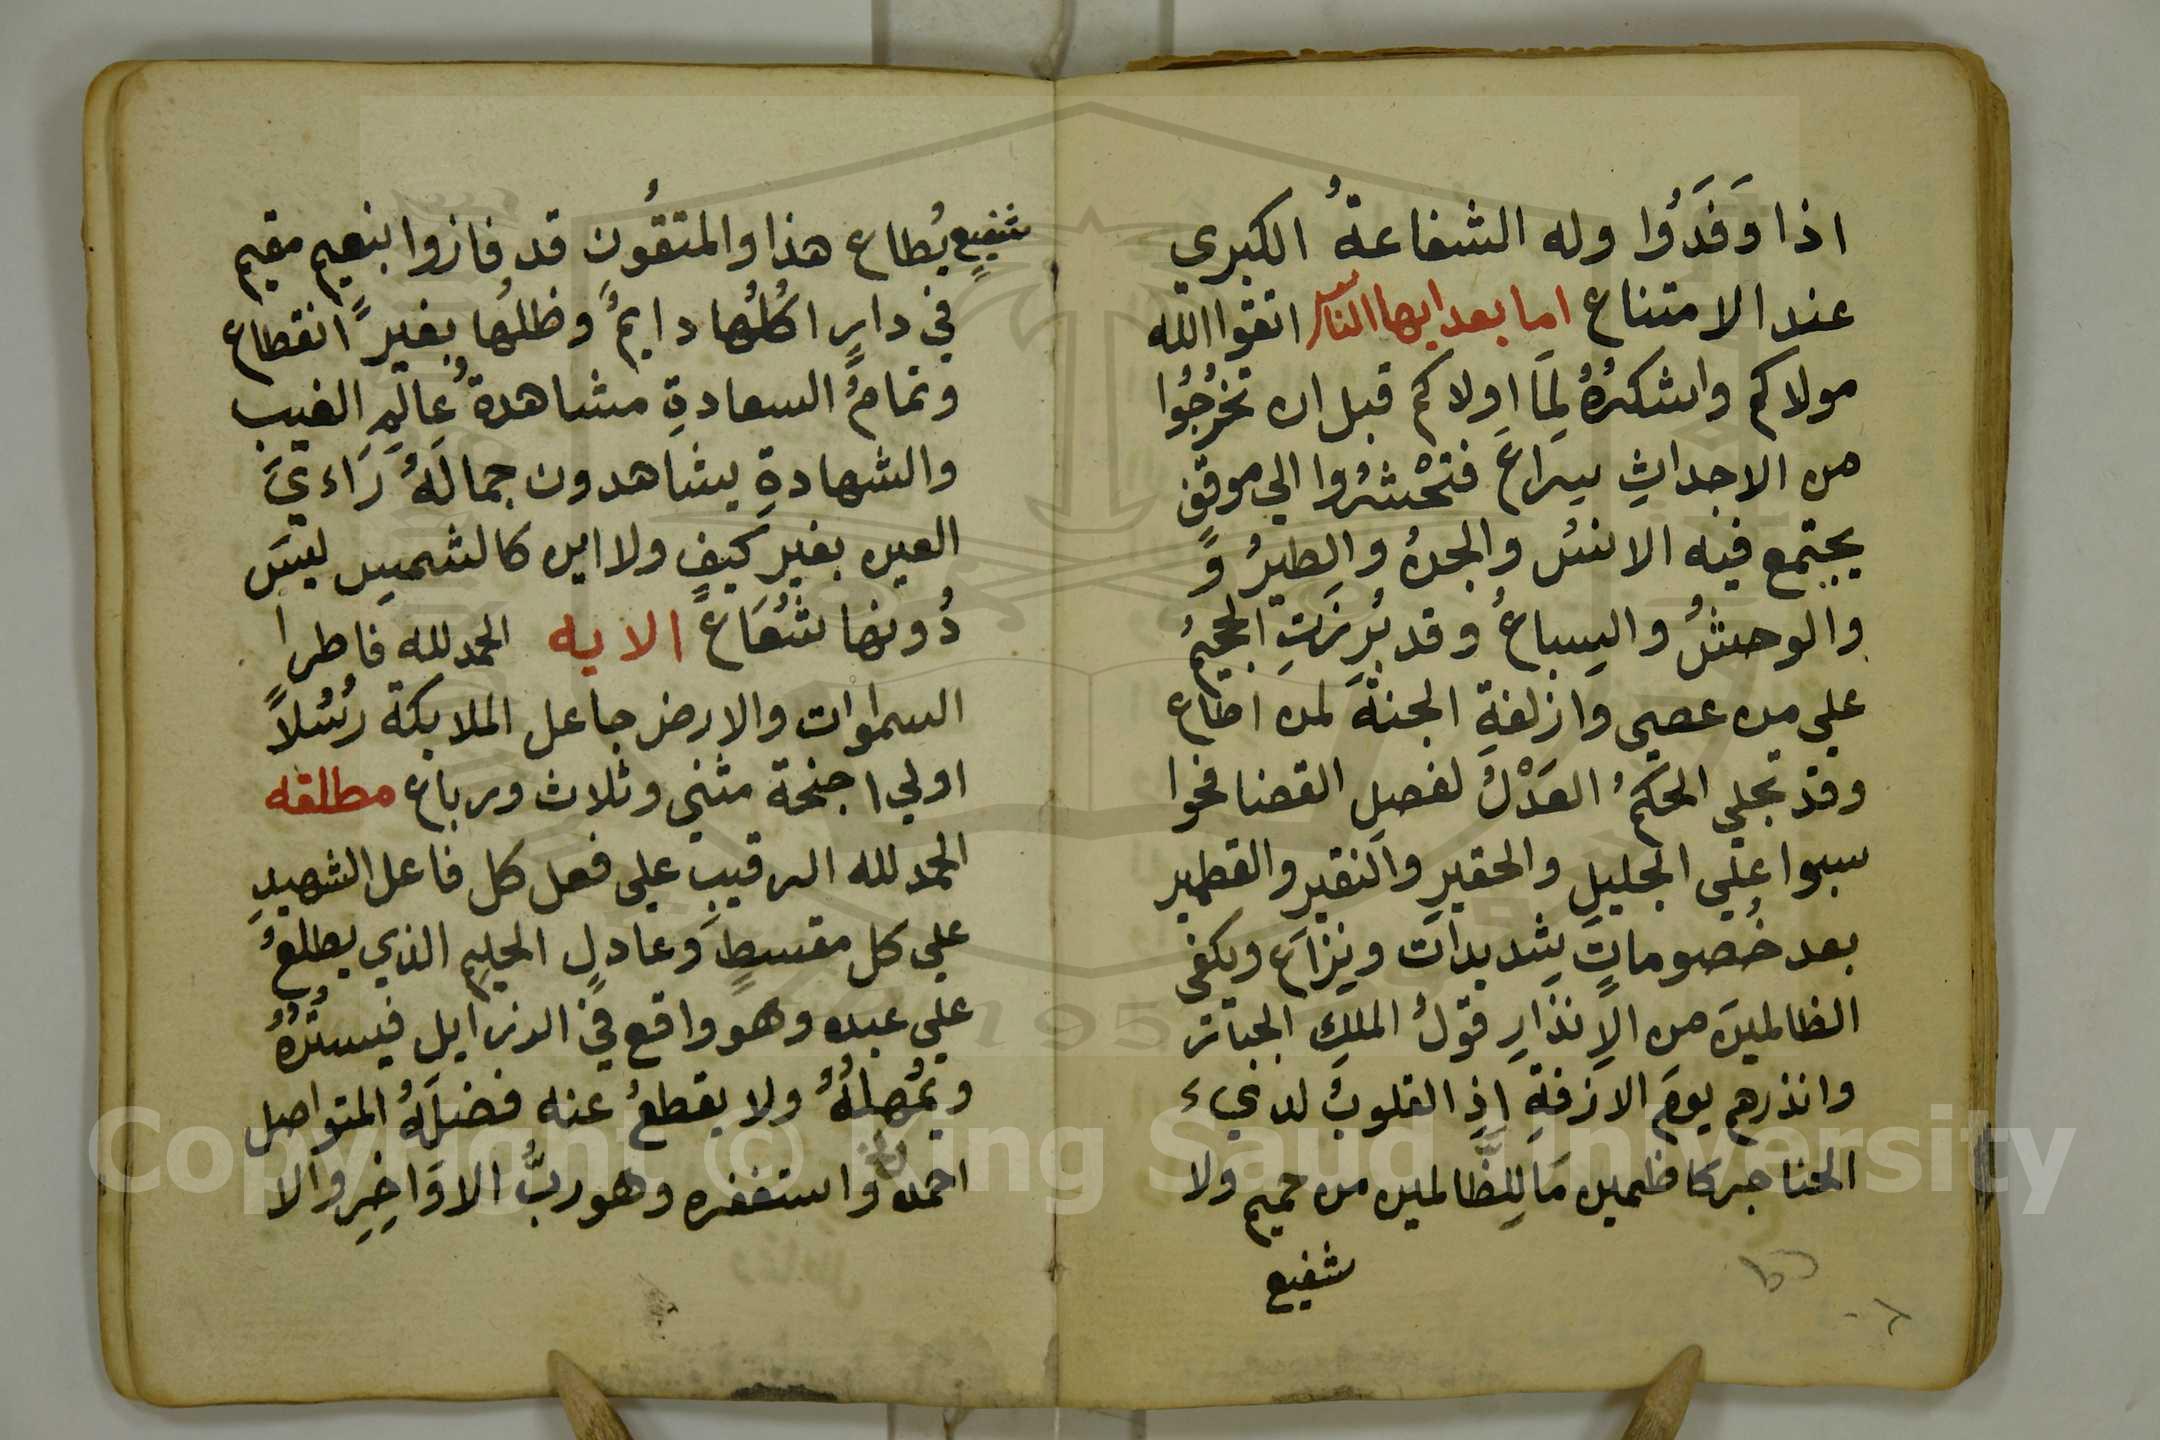 اذا وَفَدَوُا وله الشفاعةُ الكبري
عند الامتناع اما بعد ايها الناس اتقوا الله
مولاكم واشكرُوُ لِمَا اولاكم قبل ان تخرُجُوا
من الاجداثِ سِرَاعَ فتحْشرُوا الي موقفٍ
يجتمع فيه الانسُ والجنُ والطيرُ وَ
والوحشُ والسِباعُ وقد بُرِزَتِ الجحيمُ
علي من عصي وازلفةِ الجنةَ لمن اطاع
وقد تجلي الحكمُ العَدْلُ لفصل القضا فحوا
سبوا علي الجليلِ والحقيرِ والنقيرِ والقطمير
بعد خُصوماتٍ شِديدات ونِزَاع وكفي
الظالمينَ من الاِنذارِ قولُ الملكِ الجبار
وانذرهم يومَ الازفةِ اِذِ القلوبُ لدي
الحناجر كاظمين مَا لِلظّالمين من حميم ولا
شفيع
شفيعٍ يُطاع هذا والمتقُون قد فازوا بنعيم مقيم
في دارٍ اكُلُها دايمٌ وظلُها بغير انقطاع
وتمامُ السعادةِ مشاهدةُ عالِمِ الغيب
والشهادةِ يشاهدون جمالَهُ رَاءيَ
العين بغير كيفٍ ولا اين كالشمسِ ليسَ
دُونها شُعَاع الايه الحمد لله فاطر
السموات والارض جاعل الملايكة رُسُلاً
اولي اجنحة مثني وثلاث ورباع مطلقه
الحمد لله الرقيبِ علي فعل كل فاعل الشهيدِ
علي كل مقسطٍ وعادلٍ الحليم الذي يطلعُ
علي عبده وهو واقع في الرذايل فيسترُهُ
ويُمهلُهُ ولا يقطعُ عنه فضلَهُ المتواصل
احمده واستغفره وهو ربُّ الاوَاخِرِ والا
Copyright © King Saud University